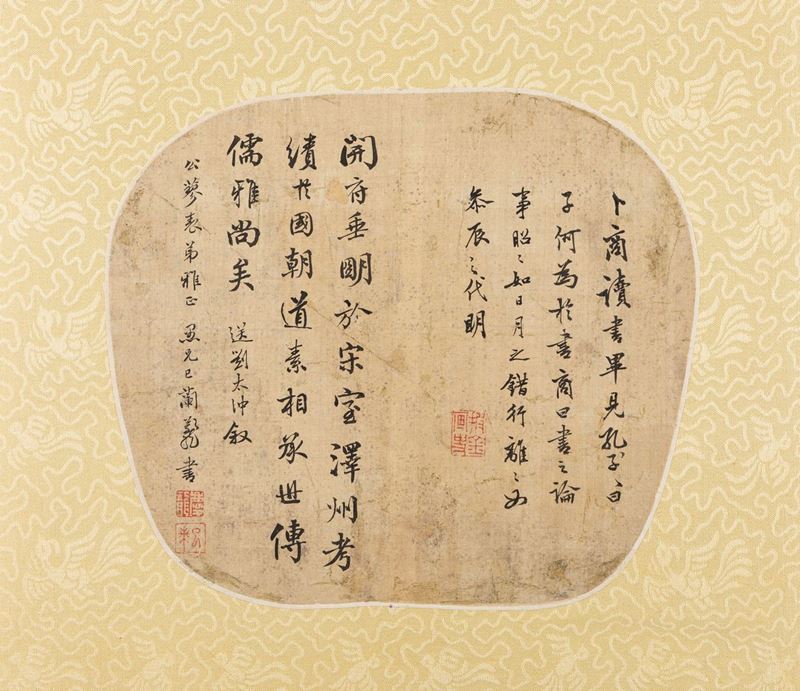 卜商讀書畢見孔子孔子曰
子何為於書商曰書之論
事昭〻如日月之錯行離〻如
叅辰之代明
開府垂明於宋室澤州考
績於國朝道素相承世傳
儒雅尚矣 送劉太沖叙
公蓼表弟雅正 愚兄巴蘭 書